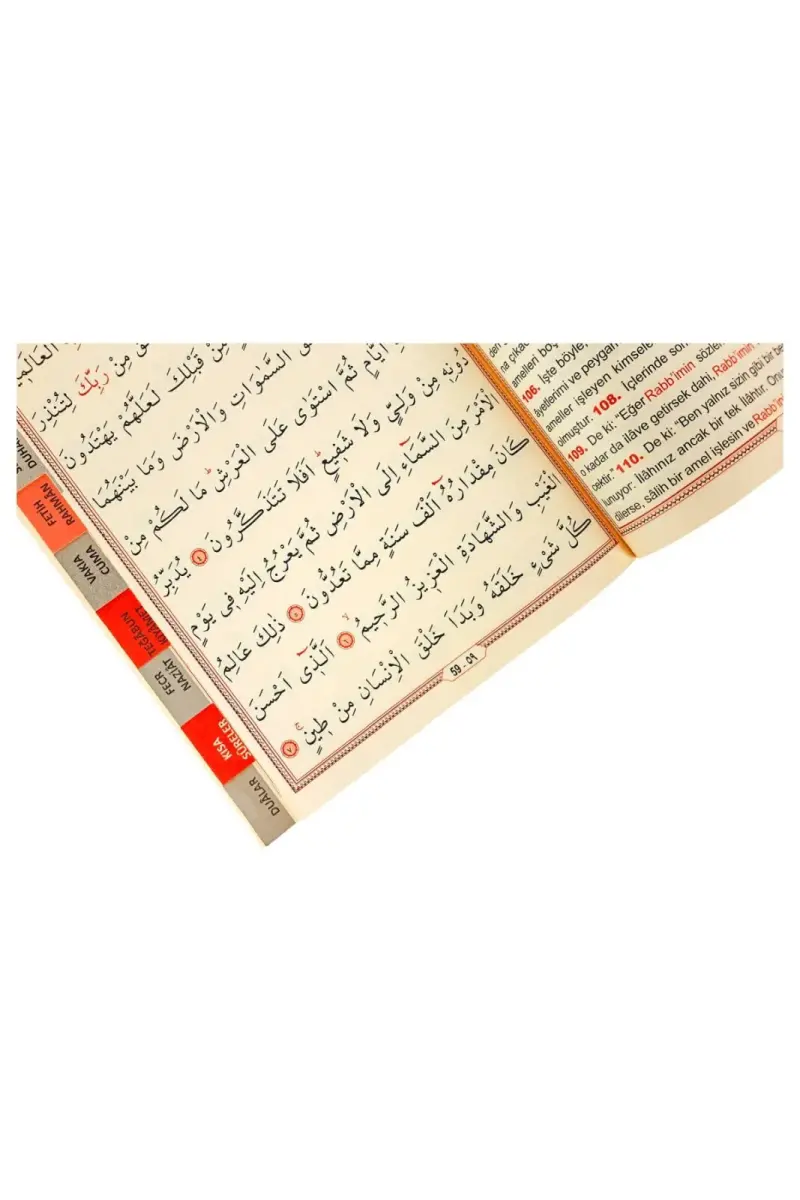 مِنْ رَبِّكَ لِتُنْذِرَ
مِنْ قَبْلِكَ لَعَلَّهُمْ يَهْتَدُونَ
السَّمٰوَاتِ وَالْاَرْضَ وَمَا بَيْنَهُمَا
اَيَّامٍ ثُمَّ اسْتَوٰى عَلَى الْعَرْشِۜ مَا لَكُمْ مِنْ
دُونِه۪ مِنْ وَلِيٍّ وَلَا شَف۪يعٍۜ اَفَلَا تَتَذَكَّرُونَ ٤ يُدَبِّرُ
الْاَمْرَ مِنَ السَّمَٓاءِ اِلَى الْاَرْضِ ثُمَّ يَعْرُجُ اِلَيْهِ ف۪ي يَوْمٍ
كَانَ مِقْدَارُهُٓ اَلْفَ سَنَةٍ مِمَّا تَعُدُّونَ ٥ ذٰلِكَ عَالِمُ
الْغَيْبِ وَالشَّهَادَةِ الْعَز۪يزُ الرَّح۪يمُۙ ٦ اَلَّذ۪ٓي اَحْسَنَ
كُلَّ شَيْءٍ خَلَقَهُ وَبَدَاَ خَلْقَ الْاِنْسَانِ مِنْ ط۪ينٍۚ ٧
59 - ٥٩
FETİH
RAHMAN
VAKIA
CUMA
TEGÂBUN
KIYÂMET
FECR
NAZİÂT
KISA
SÛRELER
DUÂLAR
amelleri boş
106. İşte böyle,
âyetlerimi ve peygam
ameller işleyen kimsele
olmuştur. 108. İçlerinde son
109. De ki: "Eğer Rabb'imin sözler
o kadar da ilâve getirsek dahi, Rabb'imin
cektir." 110. De ki: "Ben yalnız sizin gibi bir be
lunuyor. İlâhınız ancak bir tek ilâhtır. Onu
dilerse, sâlih bir amel işlesin ve Rabb'in